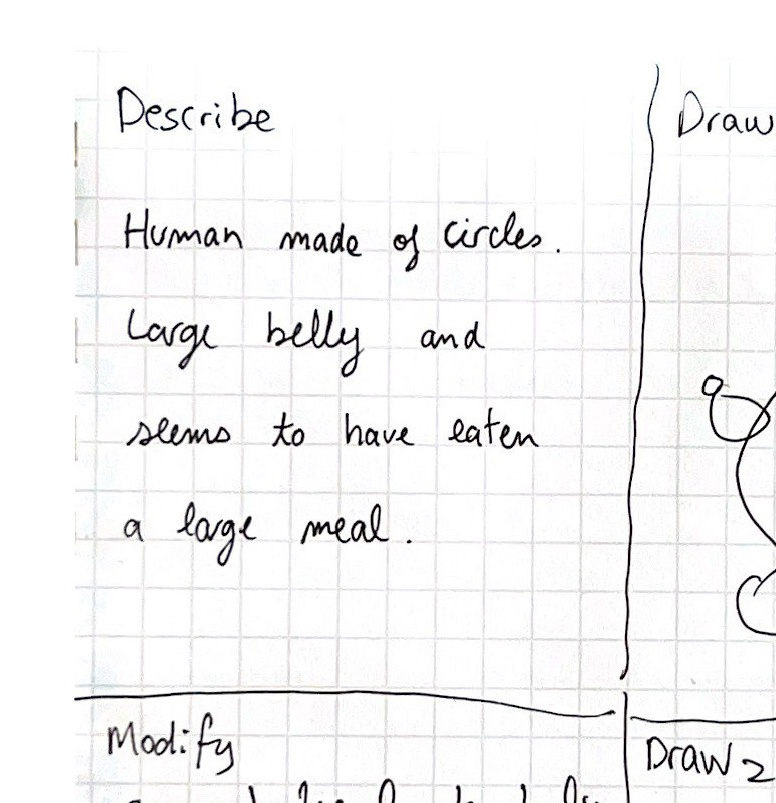 Describe
Draw
Human made of circles.
Large belly and
seems to have eaten
a large meal.
Modify
Draw 2